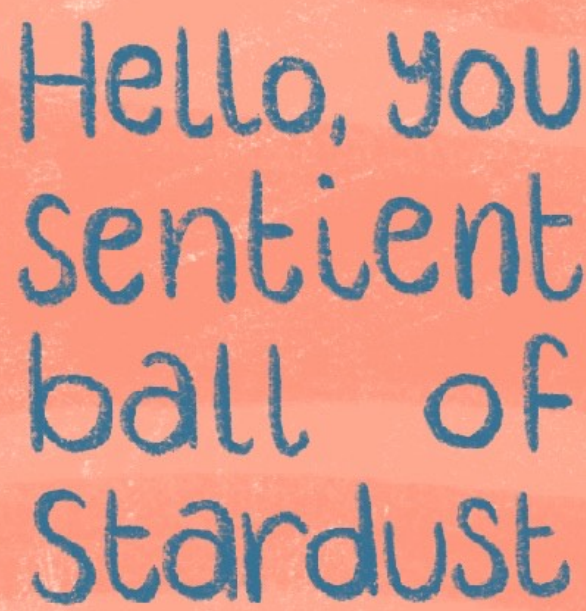 Hello, you
sentient
ball of
Stardust